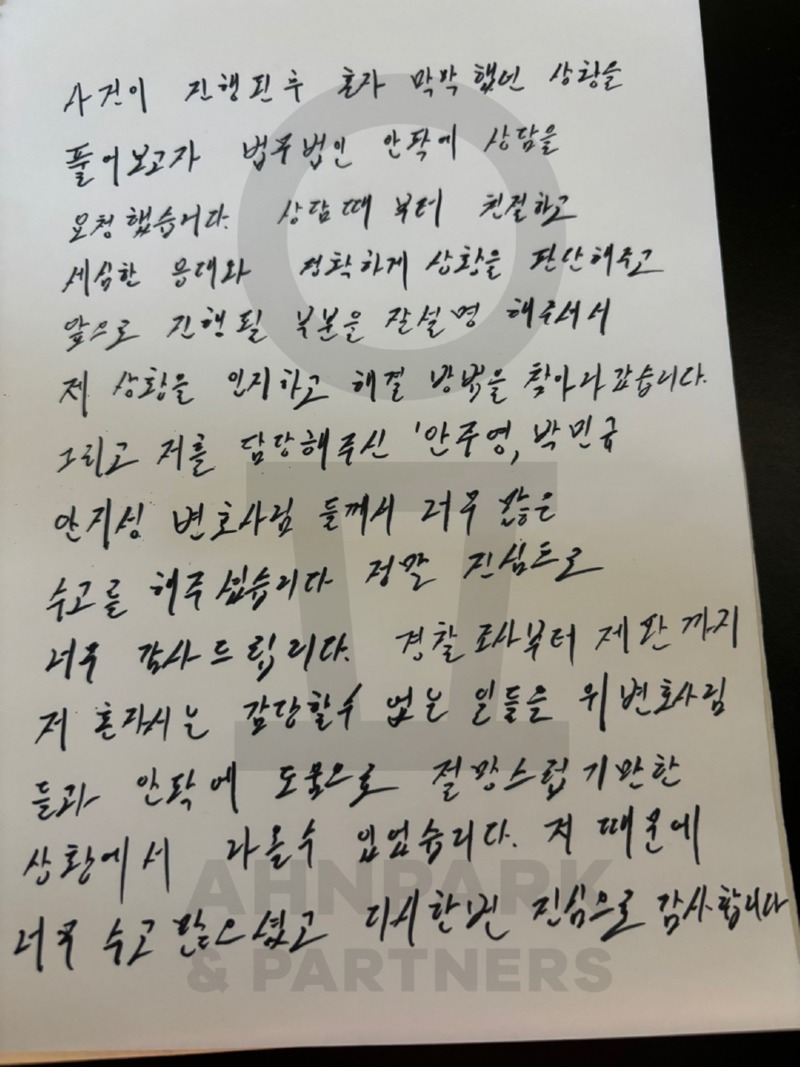 사건이 진행된후 혼자 막막했던 상황을
풀어보고자 법무법인 안팍에 상담을
요청했습니다. 상담때 부터 친절하고
세심한 응대와 정확하게 상황을 판단해주고
앞으로 진행될 부분을 잘설명 해주셔서
제 상황을 인지하고 해결 방법을 찾아나갔습니다.
그리고 저를 담당해주신 '안주영, 박민규
안지성 변호사님 들께서 너무 많은
수고를 해주셨습니다 정말 진심으로
너무 감사드립니다. 경찰조사부터 재판까지
저 혼자서는 감당할수 없는 일들을 위 변호사님
들과 안팍에 도움으로 절망스럽기만한
상황에서 나올수 있었습니다. 저 때문에
너무 수고 많으셨고 다시한번 진심으로 감사합니다
AHNPARK
& PARTNERS